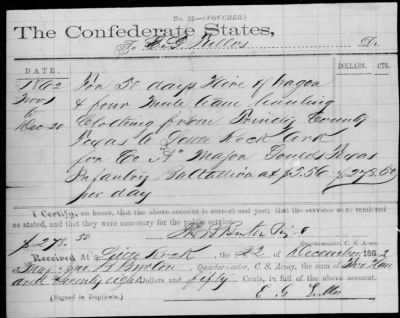 No. 22.—(VOUCHER.)
The Confederate States,
To E. G. Dr.
DATE. DOLLARS. CTS.
1862 For 50 days Hire of wagon
Nov 1 & four Mule team hauling
to Clothing from County
Dec 20 Texas to Little Rock Ark
for Co "A" Major Texas
Infantry Battalion at $5.56 $278.50
per day
I Certify, on honor, that the above account is correct and just; that the services were rendered
as stated, and that they were necessary for the public service.
$278.50
Quartermaster, C. S. Army.
Received At Little Rock the 22 of December 1862
of Maj Burton Quartermaster, C. S. Army, the sum of Two Hun
and Seventy eight Dollars and fifty Cents, in full of the above account.
(Signed in Duplicate.) E G